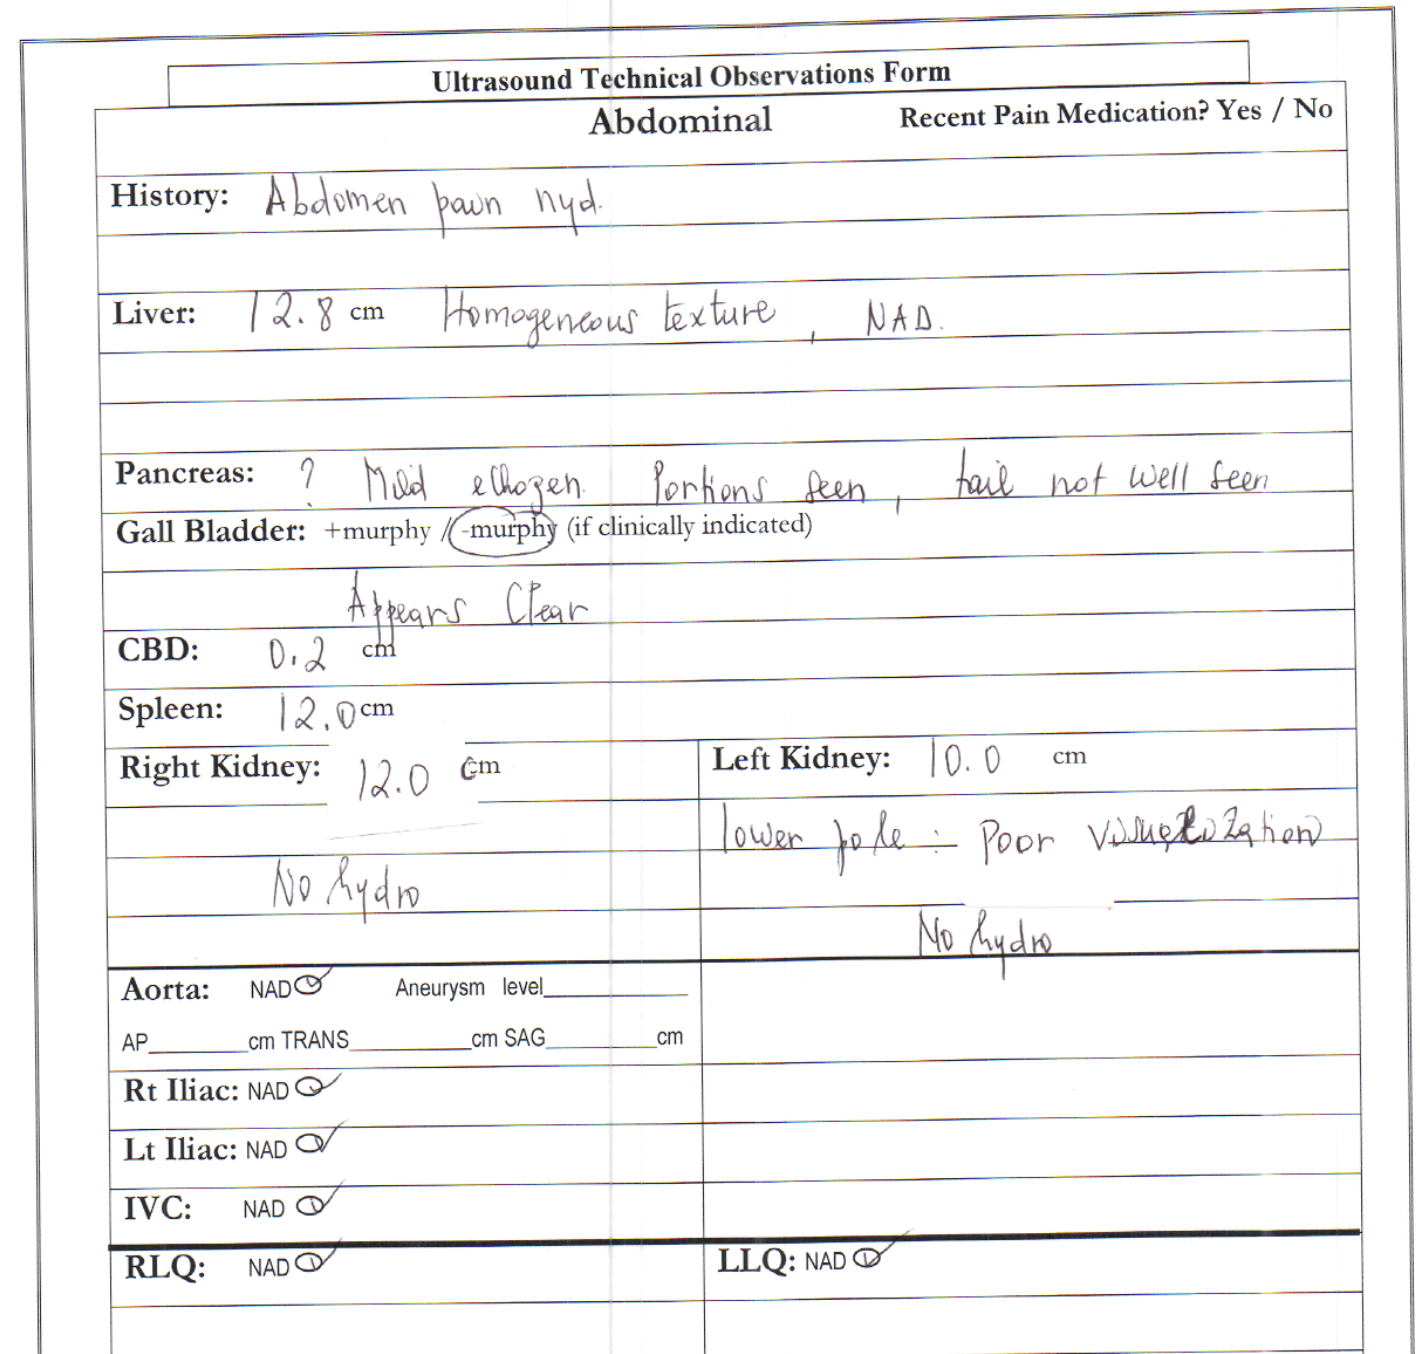 Ultrasound Technical Observations Form
Abdominal Recent Pain Medication? Yes / No
History: Abdomen pain nyd.
Liver: 12.8 cm Homogeneous texture, NAD.
Pancreas: ? Mild echogen. Portions seen, tail not well seen
Gall Bladder: +murphy / -murphy (if clinically indicated)
Appears Clear
CBD: 0.2 cm
Spleen: 12.0 cm
Right Kidney: 12.0 cm Left Kidney: 10.0 cm
lower pole : Poor visualization
No hydro
No hydro
Aorta: NAD Aneurysm level
AP cm TRANS cm SAG cm
Rt Iliac: NAD
Lt Iliac: NAD
IVC: NAD
RLQ: NAD LLQ: NAD